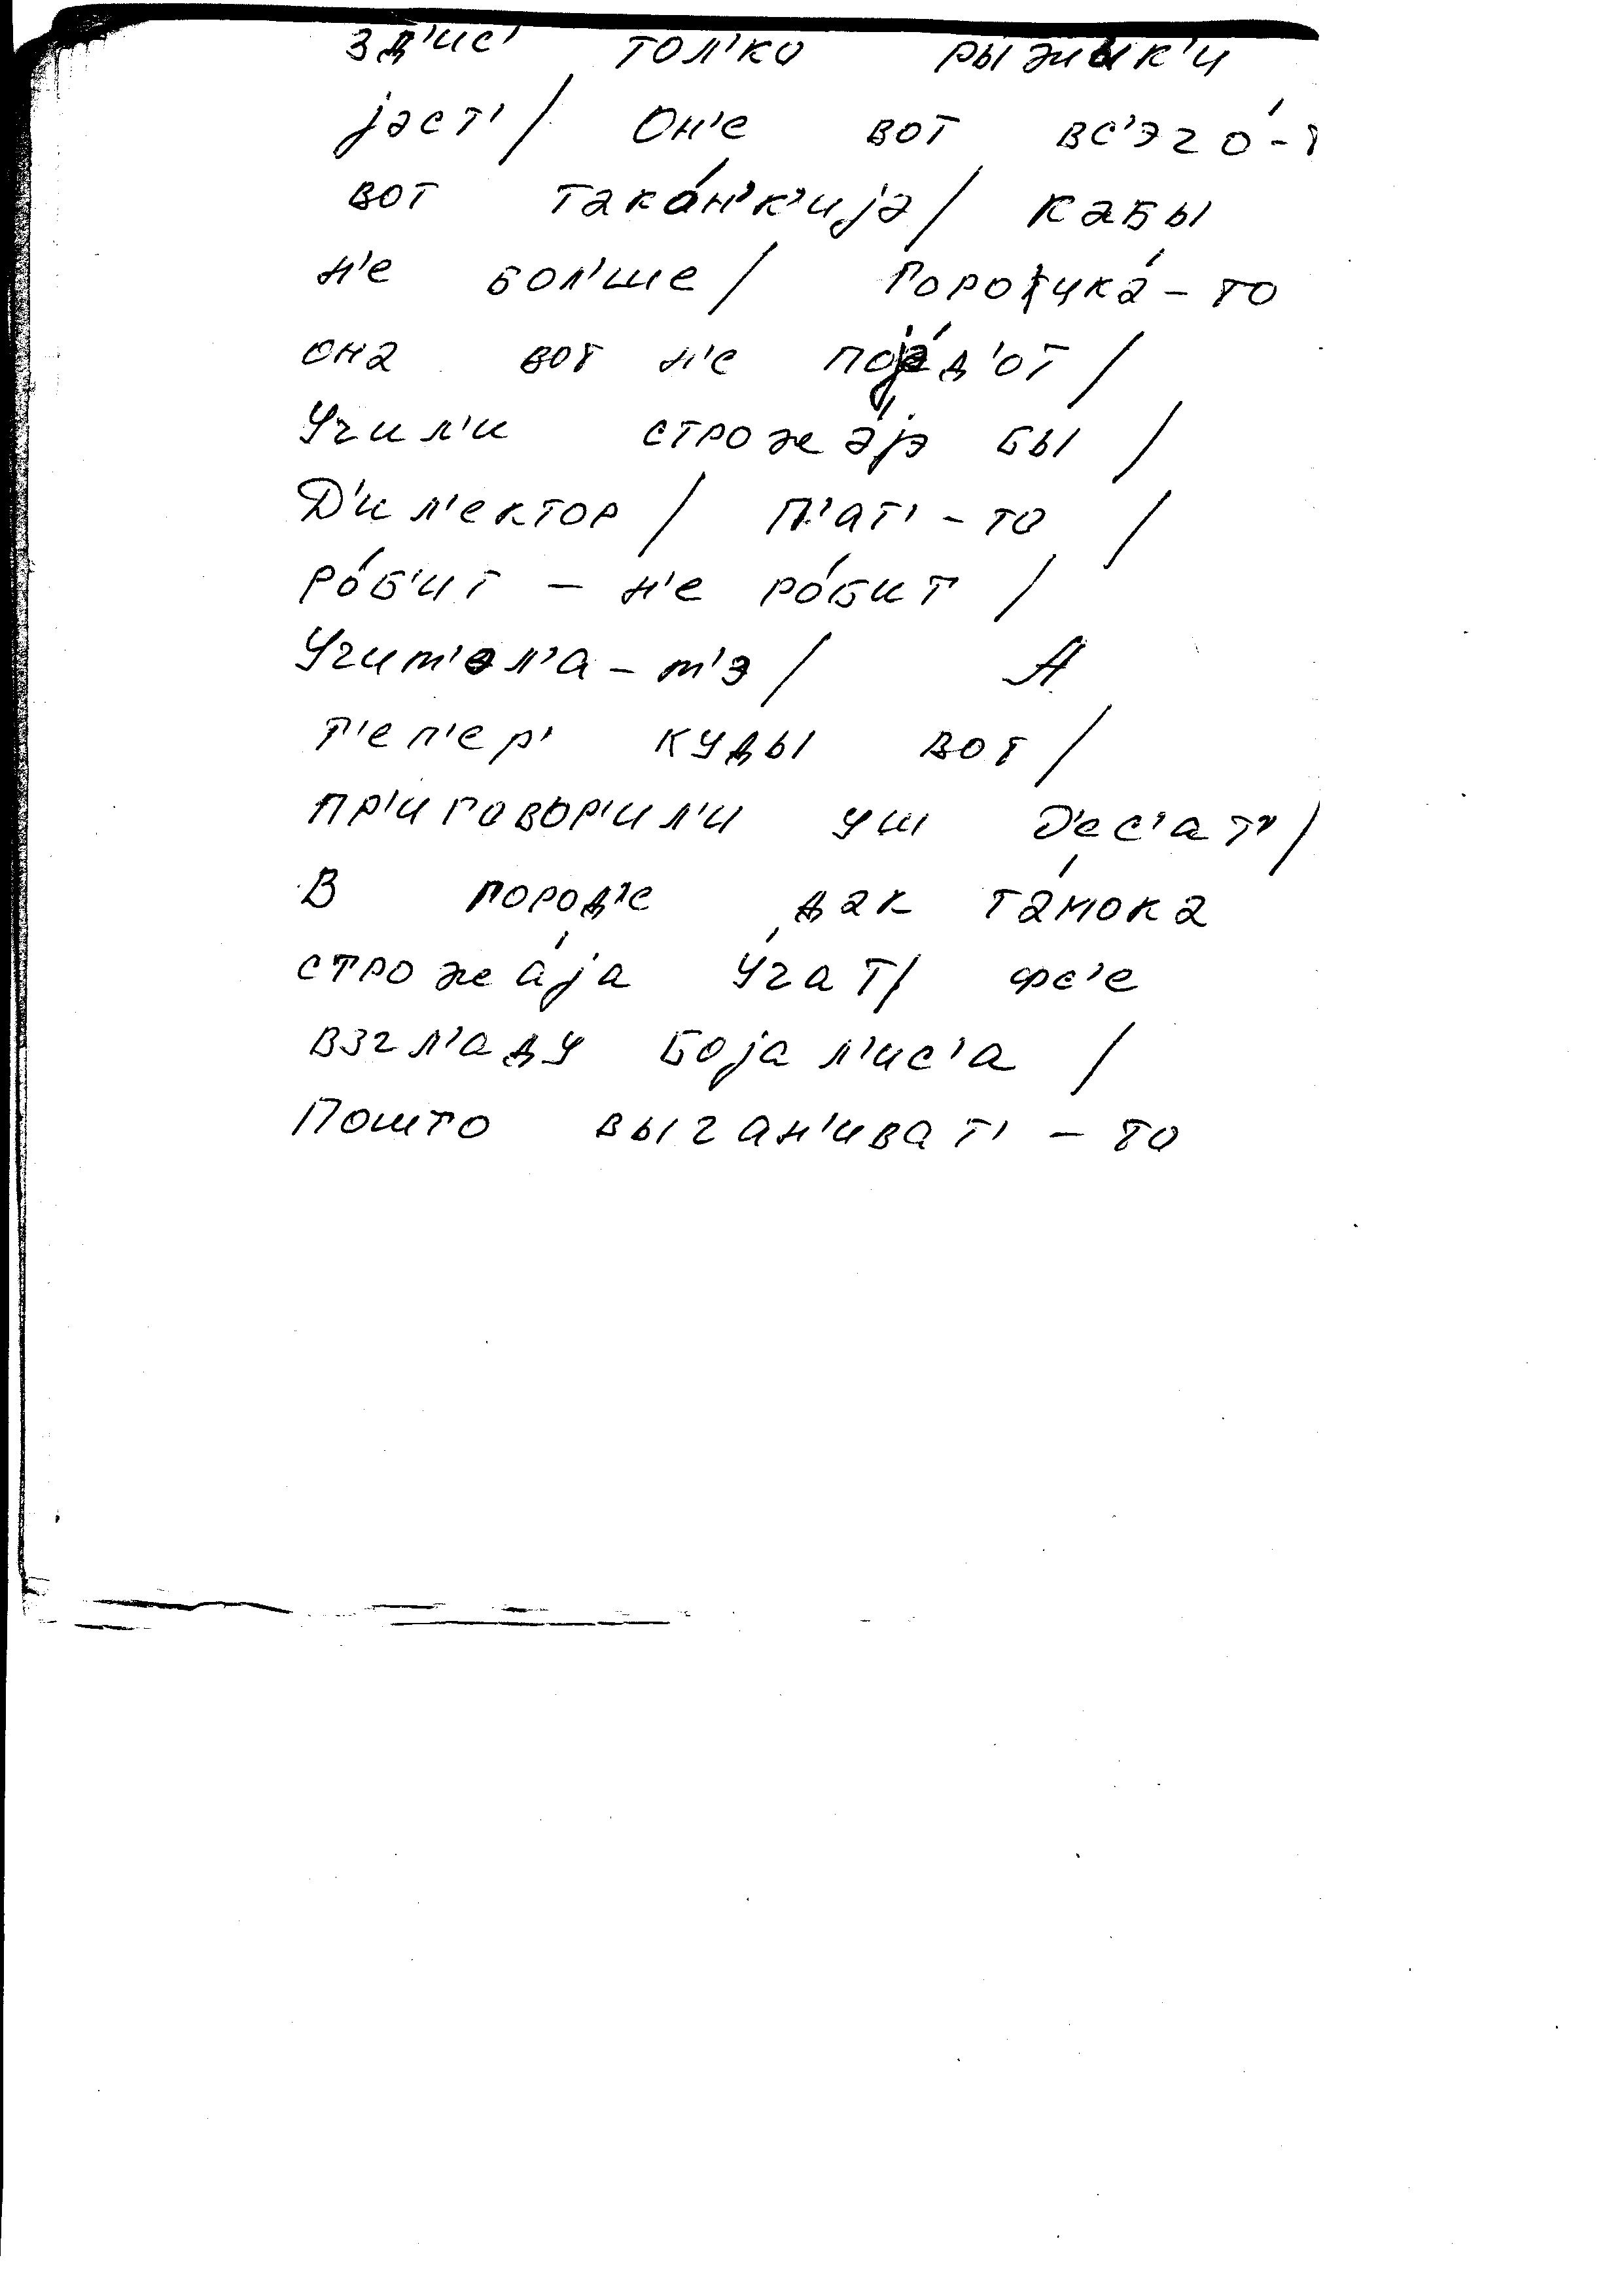 зд'ис' тол'ко рыжык'и
jэст'/ Он'е вот вс'эго́-т
вот така́н'к'иjэ/ кабы
н'е бол'ше/ Горотчика́-то
она вот н'е поjэ́д'от/
Учил'и строжа́jэ бы/
Д'ил'ектор/ п'ат'-то/
ро́б'ит - н'е ро́бит/
Учит'эл'а-т'э/ А
т'еп'ер' куды вот/
пр'иговор'ил'и уш д'ес'ат'/
В город'е дак та́мока
строжа́jа у́чат/ фс'е
взгл'аду боjал'ис'а/
Пошто выган'иват'-то